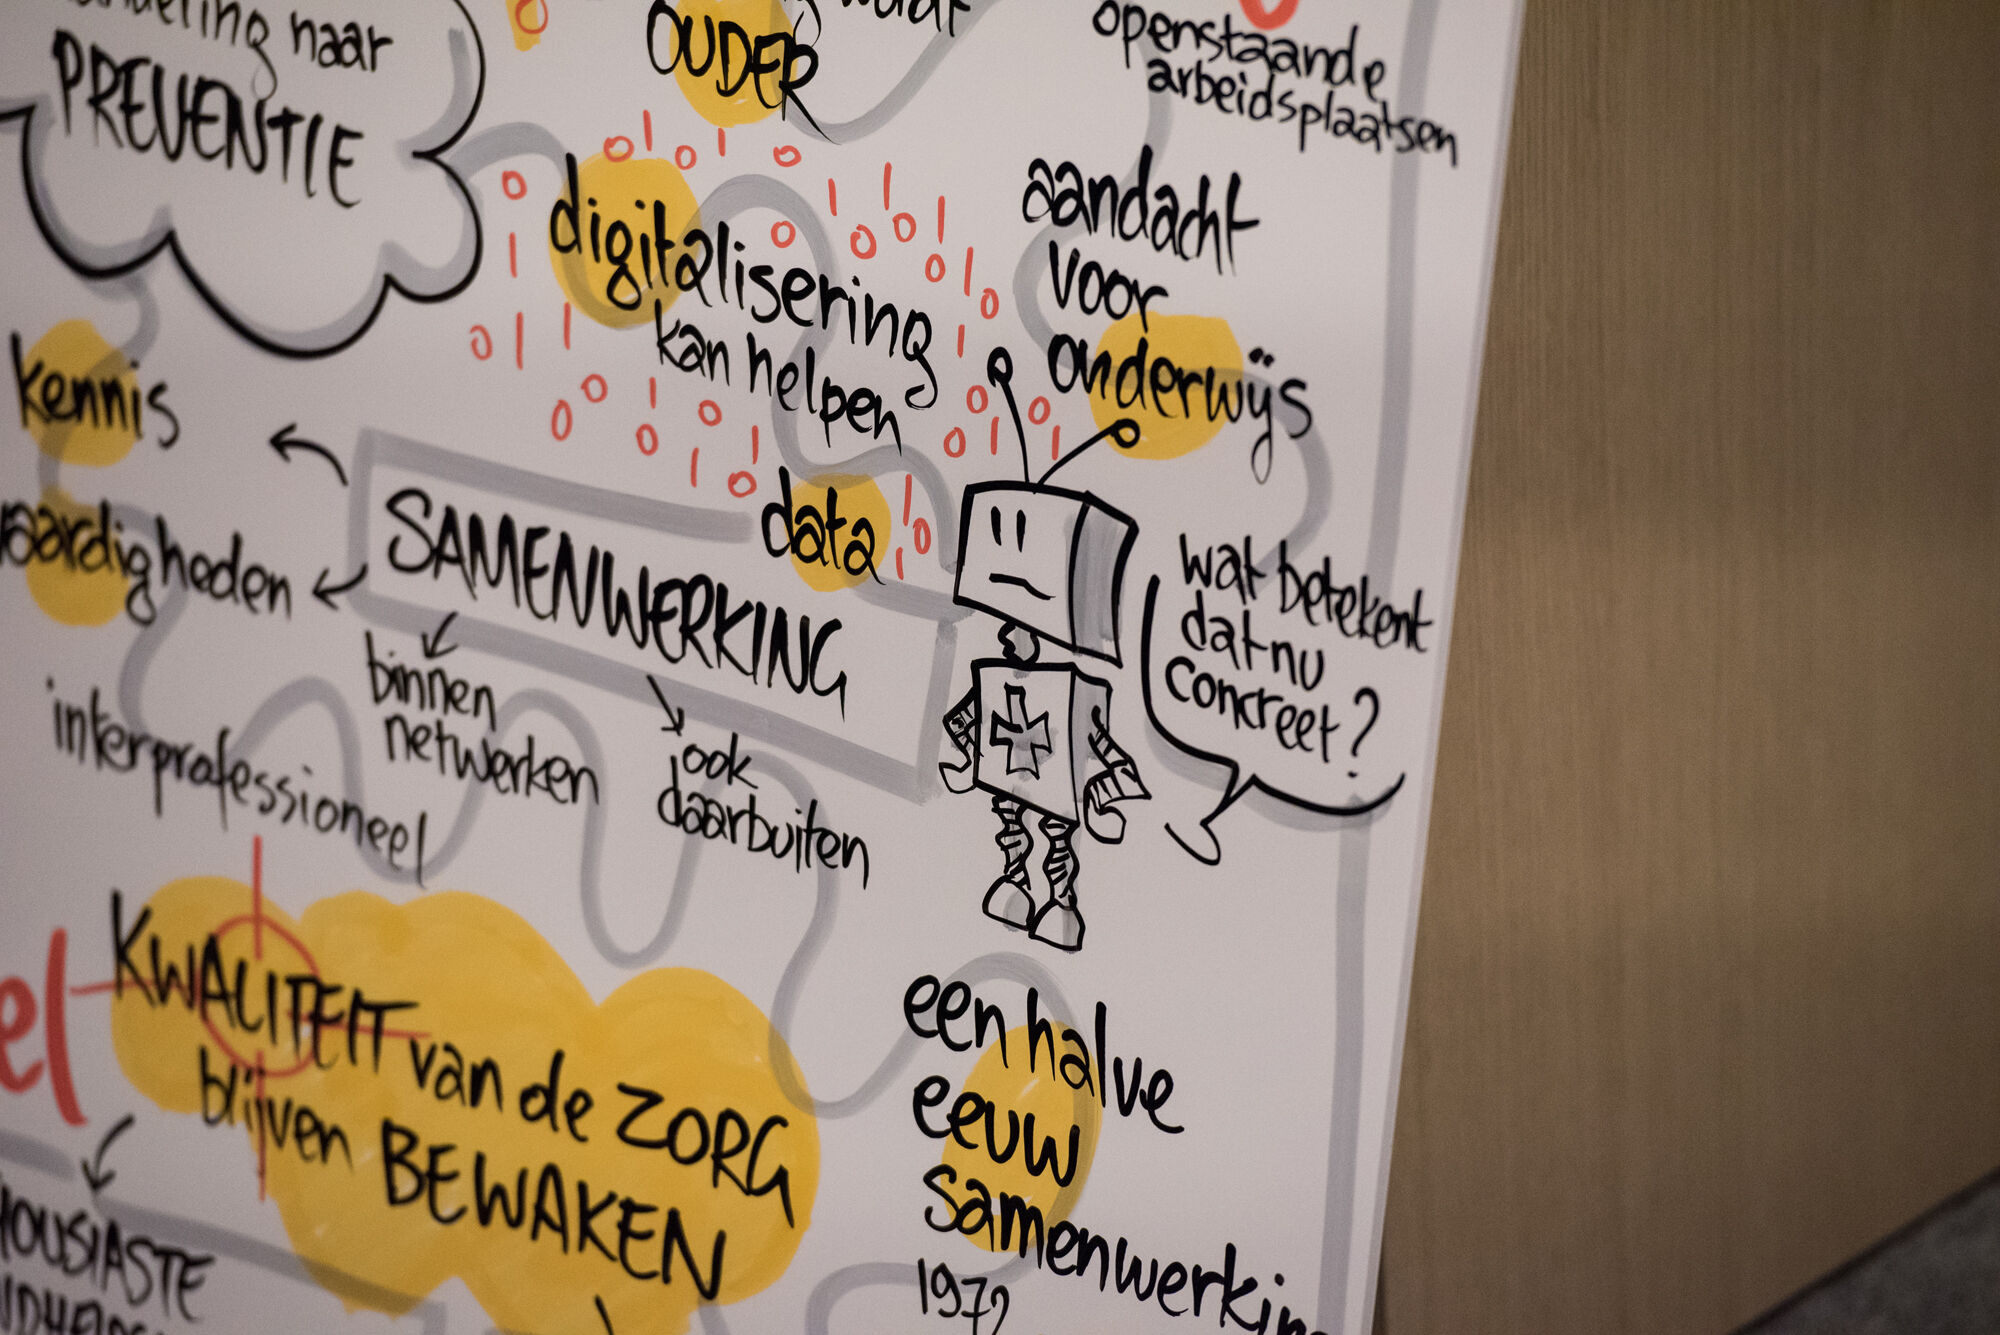 naar
PREVENTIE
OUDER
openstaande
arbeidsplaatsen
digitalisering
kan helpen
data
aandacht
voor
onderwijs
kennis
vaardigheden
SAMENWERKING
interprofessioneel
binnen
netwerken
ook
daarbuiten
wat betekent
dat nu
concreet?
KWALITEIT van de ZORG
blijven BEWAKEN
een halve
eeuw
samenwerkin
1972
el
HOUSIASTE